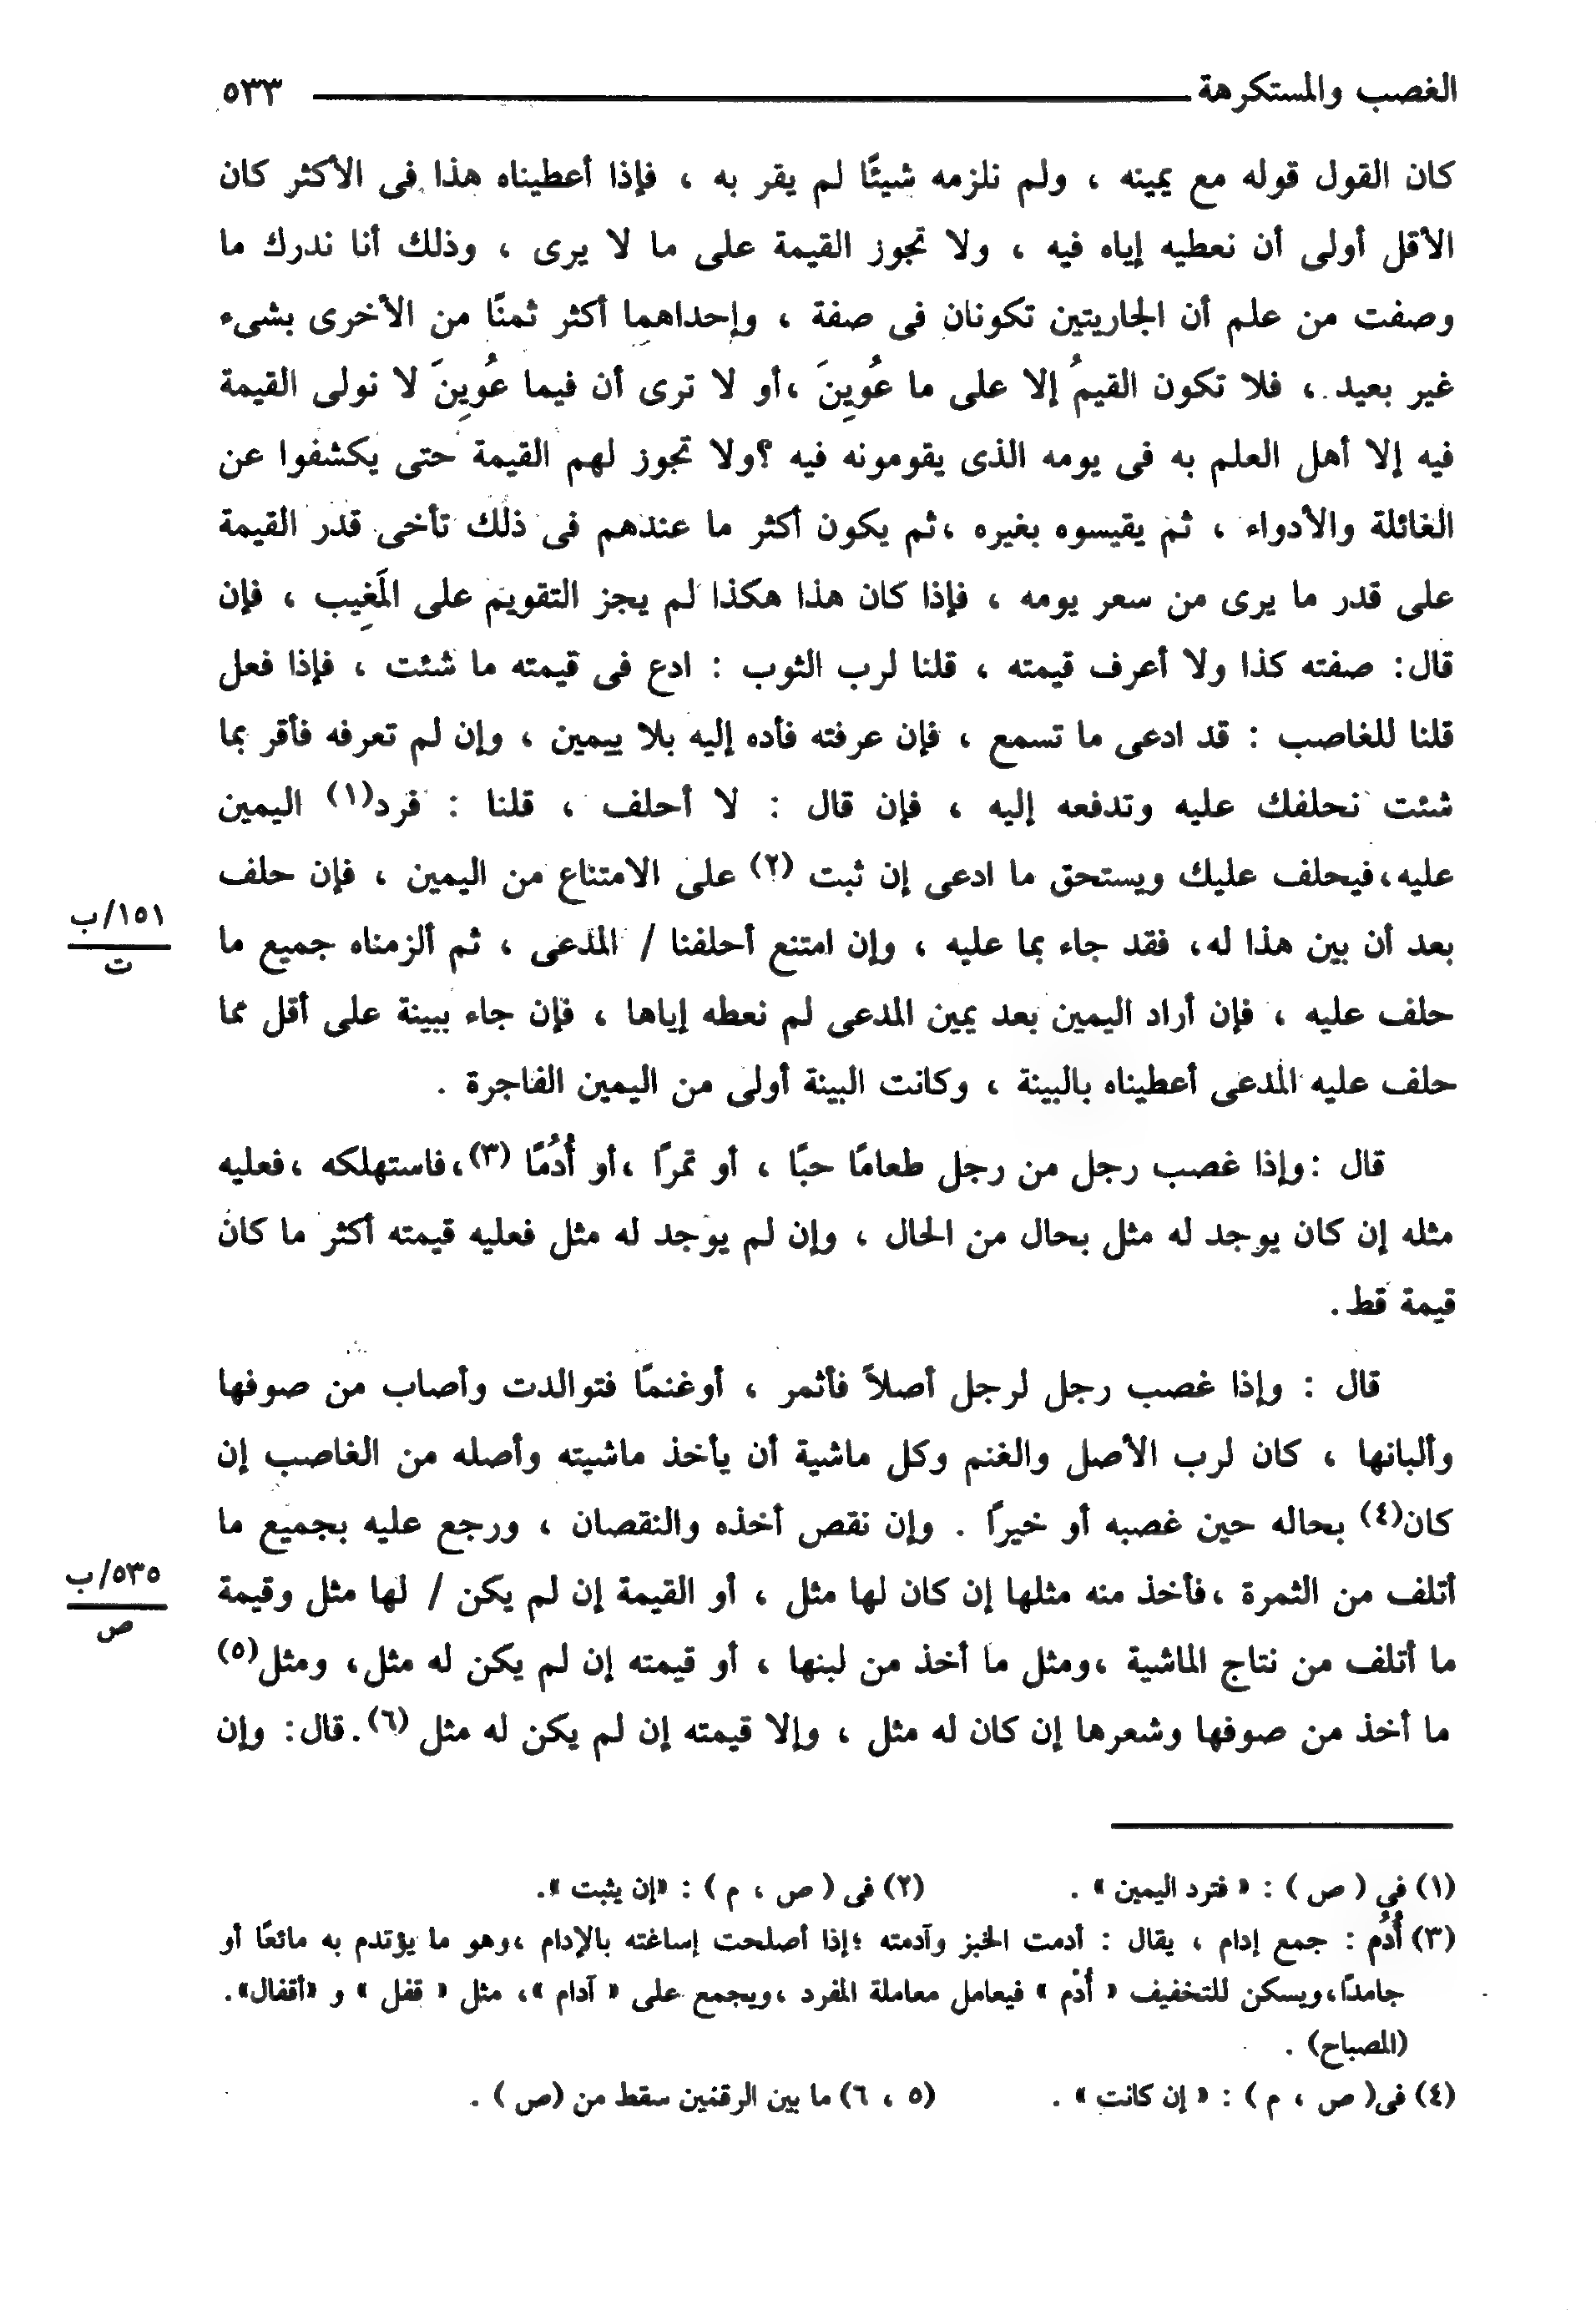 الغصب والمستكرهة ٥٣٣
كان القول قوله مع يمينه ، ولم نلزمه شيئًا لم يقر به ، فإذا أعطيناه هذا فى الأكثر كان
الأقل أولى أن نعطيه إياه فيه ، ولا تجوز القيمة على ما لا يرى ، وذلك أنا ندرك ما
وصفت من علم أن الجاريتين تكونان فى صفة ، وإحداهما أكثر ثمنًا من الأخرى بشىء
غير بعيد ، فلا تكون القيمُ إلا على ما عُوِينَ ،أو لا ترى أن فيما عُوِينَ لا نولى القيمة
فيه إلا أهل العلم به فى يومه الذى يقومونه فيه ؟ولا تجوز لهم القيمة حتى يكشفوا عن
الغائلة والأدواء ، ثم يقيسوه بغيره ،ثم يكون أكثر ما عندهم فى ذلك تأخى قدر القيمة
على قدر ما يرى من سعر يومه ، فإذا كان هذا هكذا لم يجز التقويم على المَغِيب ، فإن
قال: صفته كذا ولا أعرف قيمته ، قلنا لرب الثوب : ادع فى قيمته ما شئت ، فإذا فعل
قلنا للغاصب : قد ادعى ما تسمع ، فإن عرفته فأده إليه بلا يمين ، وإن لم تعرفه فأقر بما
شئت نحلفك عليه وتدفعه إليه ، فإن قال : لا أحلف ، قلنا : فرد(١) اليمين
عليه،فيحلف عليك ويستحق ما ادعى إن ثبت (٢) على الامتناع من اليمين ، فإن حلف
بعد أن بين هذا له، فقد جاء بما عليه ، وإن امتنع أحلفنا / المدعى ، ثم ألزمناه جميع ما
١٥١/ب
ت
حلف عليه ، فإن أراد اليمين بعد يمين المدعى لم نعطه إياها ، فإن جاء ببينة على أقل مما
حلف عليه المدعى أعطيناه بالبينة ، وكانت البينة أولى من اليمين الفاجرة .
قال :وإذا غصب رجل من رجل طعامًا حبًا ، أو تمرًا ،أو أُدُمًا (٣)،فاستهلكه ،فعليه
مثله إن كان يوجد له مثل بحال من الحال ، وإن لم يوجد له مثل فعليه قيمته أكثر ما كان
قيمة قط.
قال : وإذا غصب رجل لرجل أصلاً فأثمر ، أوغنمًا فتوالدت وأصاب من صوفها
وألبانها ، كان لرب الأصل والغنم وكل ماشية أن يأخذ ماشيته وأصله من الغاصب إن
كان(٤) بحاله حين غصبه أو خيرًا . وإن نقص أخذه والنقصان ، ورجع عليه بجميع ما
أتلف من الثمرة ،فأخذ منه مثلها إن كان لها مثل ، أو القيمة إن لم يكن / لها مثل وقيمة
٥٣٥/ب
ص
ما أتلف من نتاج الماشية ،ومثل ما أخذ من لبنها ، أو قيمته إن لم يكن له مثل، ومثل(٥)
ما أخذ من صوفها وشعرها إن كان له مثل ، وإلا قيمته إن لم يكن له مثل (٦).قال: وإن
(١) فى ( ص ) : « فترد اليمين » . (٢) فى ( ص ، م ) : «إن يثبت ».
(٣) أُدُم : جمع إدام ، يقال : أدمت الخبز وآدمته ؛إذا أصلحت إساغته بالإدام ،وهو ما يؤتدم به مائعًا أو
جامدًا،ويسكن للتخفيف « أُدْم » فيعامل معاملة المفرد ،ويجمع على « آدام »، مثل « قفل » و «أقفال».
(المصباح) .
(٤) فى( ص ، م ) : « إن كانت » . (٥ ، ٦) ما بين الرقنين سقط من (ص ) .